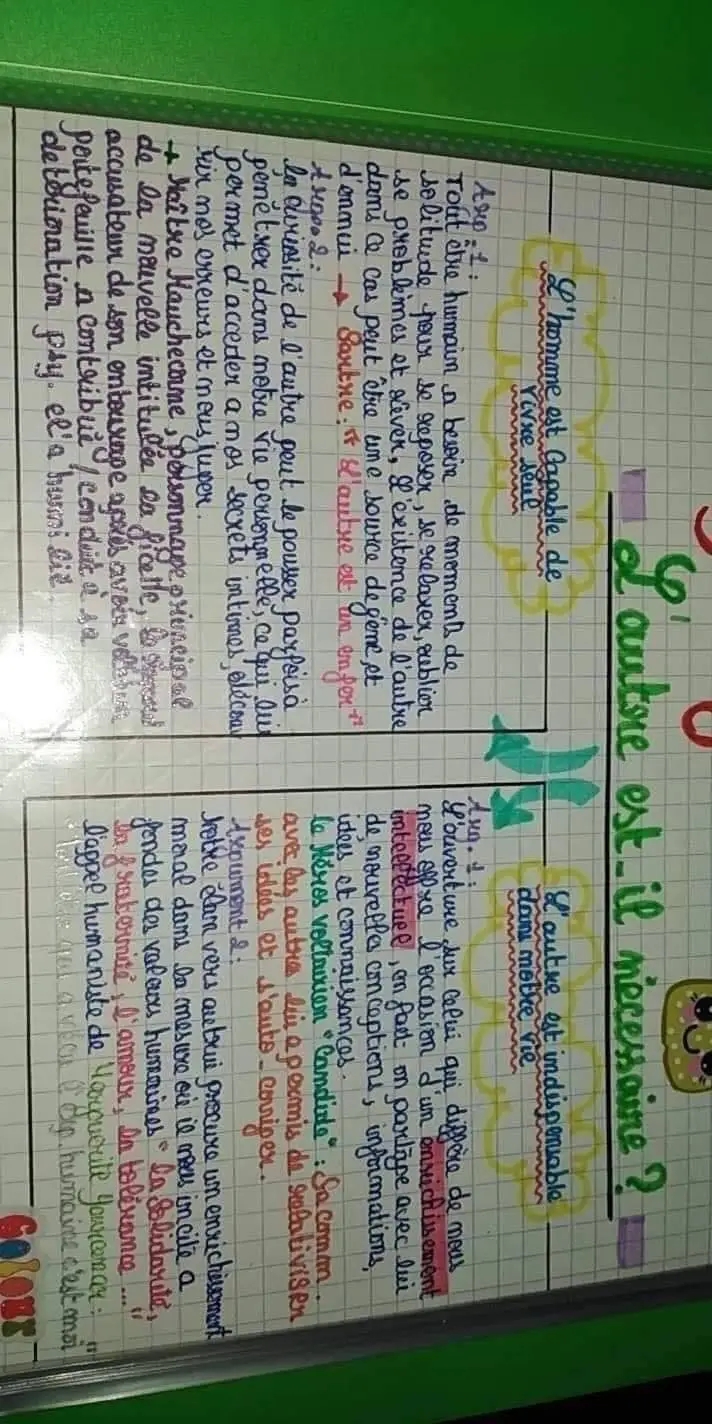 L'autre est-il nécessaire ?
L'homme est capable de
vivre seul
Arg 1 :
Tout être humain a besoin de moments de
solitude pour se reposer, se relaxer, oublier
se problèmes et rêver, l'existence de l'autre
dans ce cas peut être une source de gêne et
d'ennui → Sartre : " L'autre est un enfer "
Arg 2 :
la curiosité de l'autre peut le pousser parfois à
penêtrer dans notre vie personnelle, ce qui lui
permet d'acceder a nos secrets intimes,
sur nos erreurs et nous juger.
→ Maître Hauchecorne, personnage principal
de la nouvelle intitulée la ficelle,
accusateur de son entourage après avoir
portefeuille a contribué / conduit à sa
deterioration psy. et l'a humilié.
L'autre est indispensable
dans notre vie
Arg. 1 :
L'ouverture sur celui qui diffère de nous
nous offre l'occasion d'un enrichissement
intellectuel, en fait on partage avec lui
de nouvelles conceptions, informations,
idées et connaissances.
le héros voltairien "Candide" : Sa comm.
avec les autres lui a permis de relativiser
ses idées et s'auto-corriger.
Argument 2 :
Notre élan vers autrui procure un enrichissement
moral dans la mesure où il nous incite a
fonder des valeurs humaines " la solidarité,
la fraternité, l'amour, la tolérance ... "
l'appel humaniste de Marguerite Yourcenar : "
humaine c'est moi
Colors